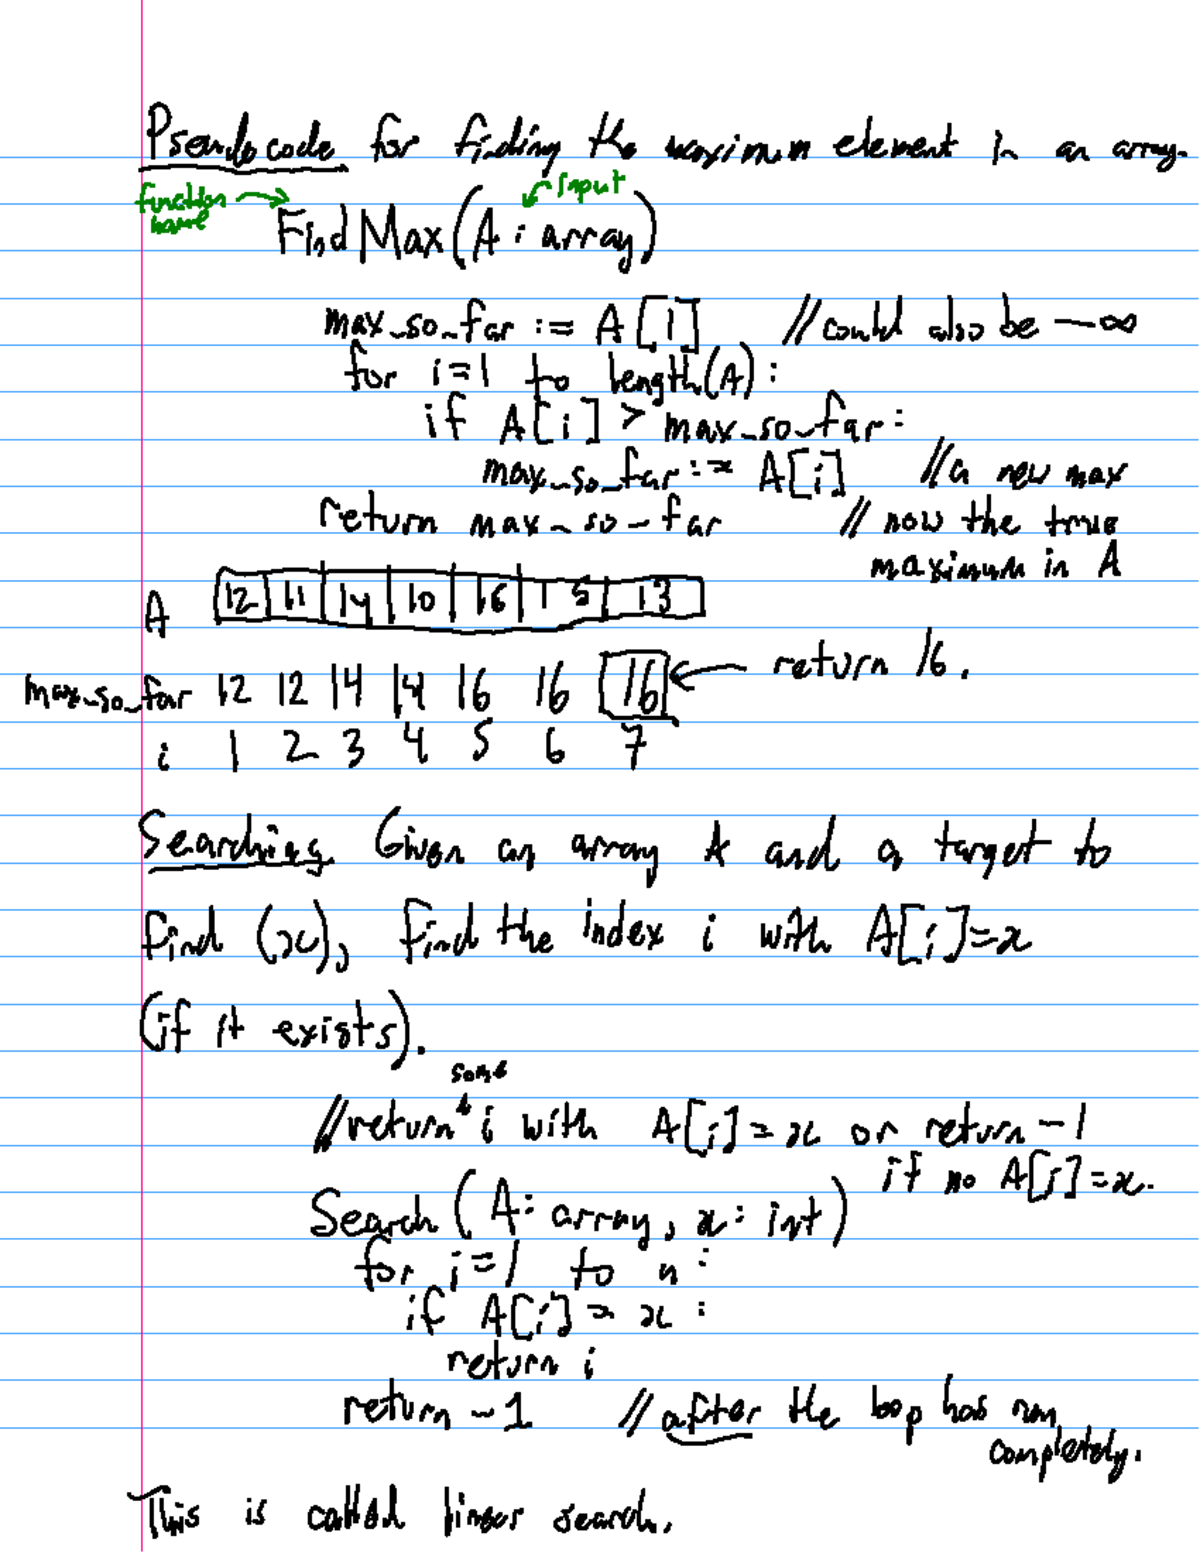 Pseudocode for finding the maximum element in an array.
function name
input
FindMax(A: array)
max_so_far := A[1] //could also be -∞
for i=1 to length(A):
if A[i] > max_so_far:
max_so_far := A[i] //a new max
return max_so_far // now the true
maximum in A
A 12 11 14 10 16 15 13
max_so_far 12 12 14 14 16 16 16 ← return 16.
i 1 2 3 4 5 6 7
Searching Given an array A and a target to
find (x), find the index i with A[i]=x
(if it exists).
some
//return i with A[i]=x or return -1
if no A[i]=x.
Search(A: array, x: int)
for i=1 to n:
if A[i] = x:
return i
return -1 //after the loop has run
completely.
This is called linear search.